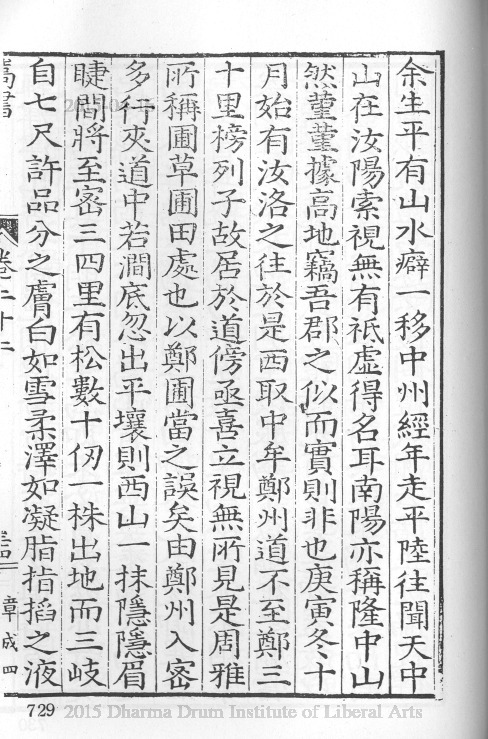 余生平有山水癖一移中州經年走平陸往聞天中
山在汝陽索視無有祗虛得名耳南陽亦稱隆中山
然蓳蓳據高地竊吾郡之似而實則非也庚寅冬十
月始有汝洛之往於是西取中牟鄭州道不至鄭三
十里榜列子故居於道傍亟喜立視無所見是周雅
所稱圃草圃田處也以鄭圃當之誤矣由鄭州入密
多行夾道中若澗底忽出平壤則西山一抹隱隱眉
睫間將至密三四里有松數十仞一株出地而三岐
自七尺許品分之膚白如雪柔澤如凝脂指搯之液
卷二十二
章成四
729 2015 Dharma Drum Institute of Liberal Arts